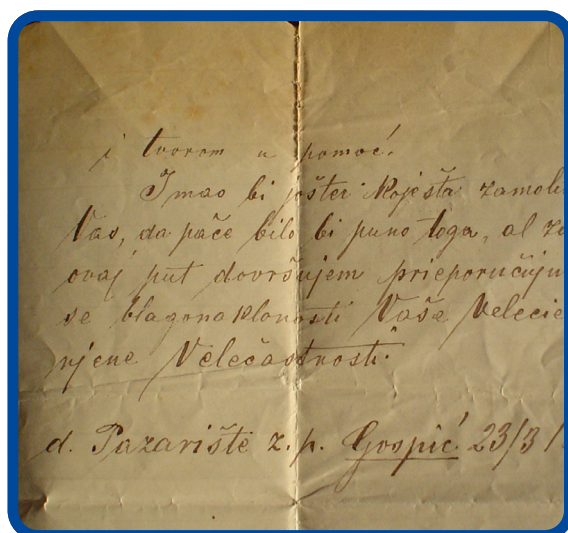 i tvorom u pomoć.
Imao bi jošter koješta zamoli
Vas, da pače bilo bi puno toga, al za
ovaj put dovršujem prieporučuju
se blagonaklonosti Vaše Velecie
njene Velečastnosti.
d. Pazarište z. p. Gospić 23/3 /